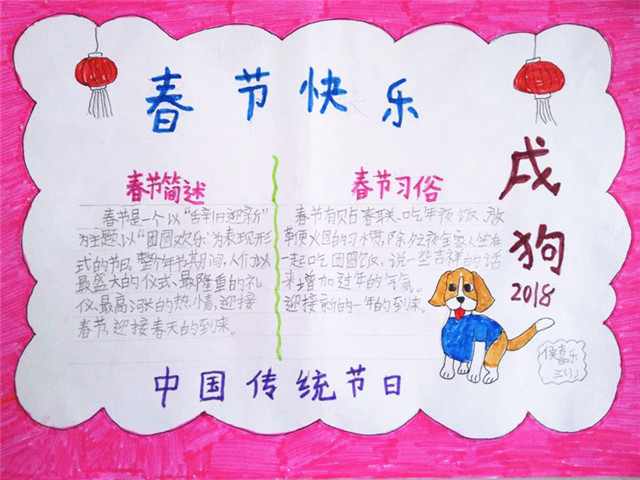 春节快乐
春节简述
春节是一个以“辞旧迎新”
为主题,以“团圆欢乐”为表现形
式的节日。整个年节期间,人们以
最盛大的仪式、最隆重的礼
仪、最高涨的热情,迎接
春节,迎接春天的到来。
春节习俗
春节有贴春联、吃年夜饭、放
鞭炮的习惯,除夕夜全家人坐在
一起吃团圆饭,说一些吉祥的话
来增加过年的气。
迎接新的一年的到来。
戌
狗
2018
中国传统节日